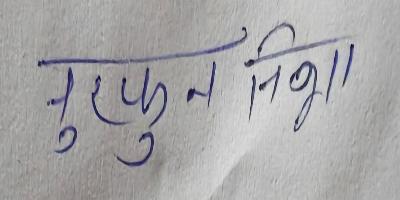 नुरफुन निशा